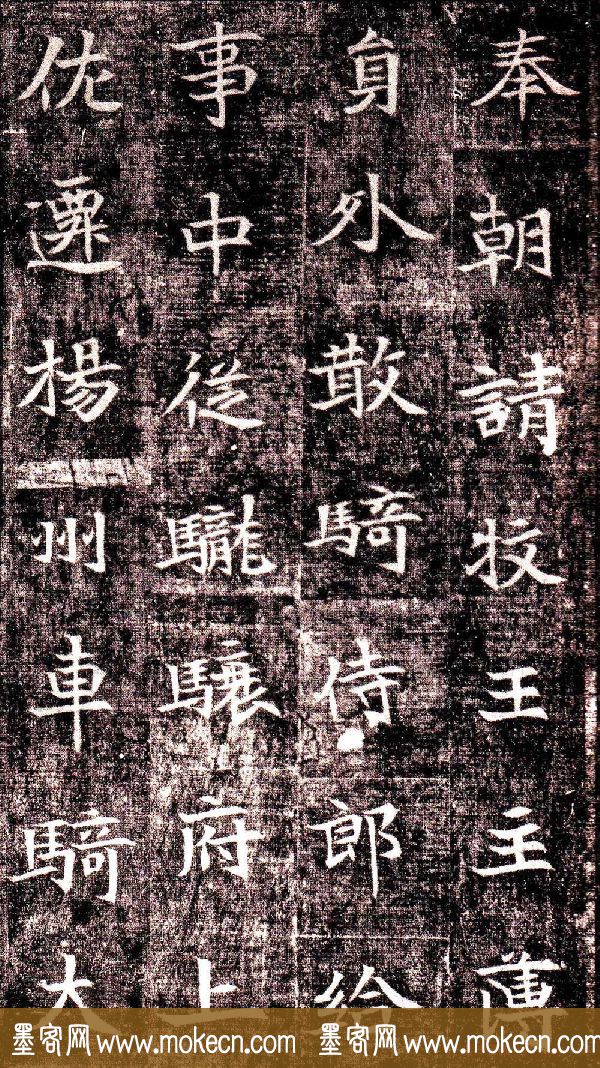 奉朝請牧王主薄
貟外散騎侍郎給
事中從䮾驤府上
佐遷楊州車騎大
墨客网 www.mokecn.com 墨客网 www.mokecn.com